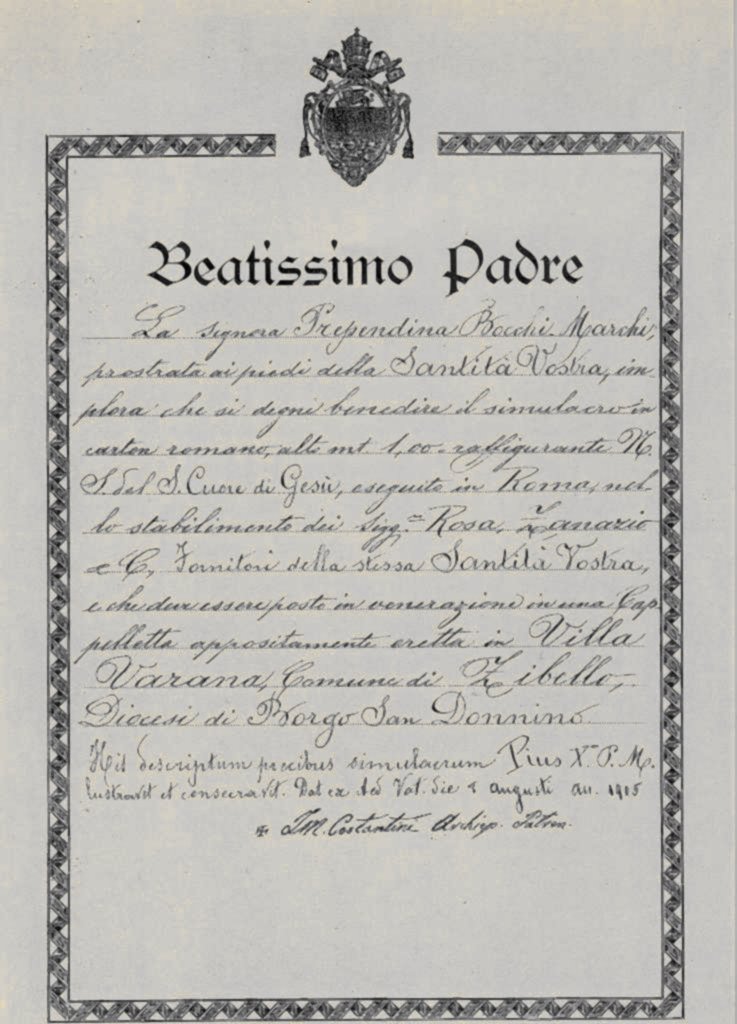 Beatissimo Padre
La signora Prependina Bocchi Marchi,
prostrata ai piedi della Santità Vostra, im-
plora che si degni benedire il simulacro in
carton romano, alto mt 1,00 raffigurante N.
S. del S. Cuore di Gesù, eseguito in Roma, nel-
lo stabilimento dei Sigg.ri Rosa, Zanazio
e C., Fornitori della stessa Santità Vostra,
e che deve essere posto in venerazione in una Cap-
pelletta appositamente eretta in Villa
Varana, Comune di Zibello,
Diocesi di Borgo San Donnino.
descriptum precibus simulacrum Pius X.us P. M.
lustravit et consecravit. Dat ex Aed Vat. die augusti an. 1905
Costantini Archiep. Patren.